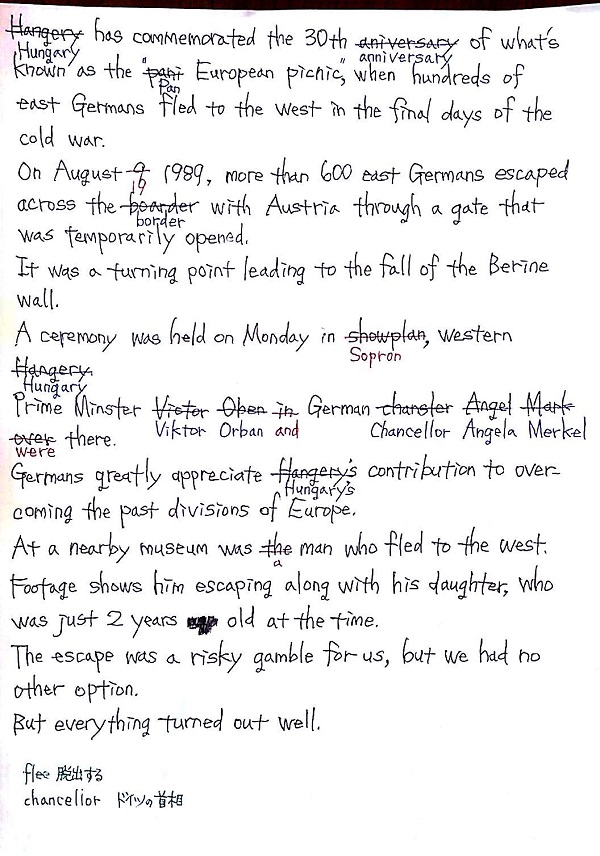 Hangery has commemorated the 30th aniversary of what's
Hungary anniversary
known as the "pani European picnic," when hundreds of
Pan
east Germans fled to the west in the final days of the
cold war.
On August 9 1989, more than 600 east Germans escaped
19
across the boarder with Austria through a gate that
border
was temporarily opened.
It was a turning point leading to the fall of the Berine
wall.
A ceremony was held on Monday in showplan, western
Sopron
Hangery.
Hungary
Prime Minster Victor Oben in German chansler Angel Mark
Viktor Orban and Chancellor Angela Merkel
over there.
were
Germans greatly appreciate Hangery's contribution to over-
Hungary's
coming the past divisions of Europe.
At a nearby museum was the man who fled to the west.
a
Footage shows him escaping along with his daughter, who
was just 2 years old at the time.
The escape was a risky gamble for us, but we had no
other option.
But everything turned out well.
flee 脱出する
chancellor ドイツの首相